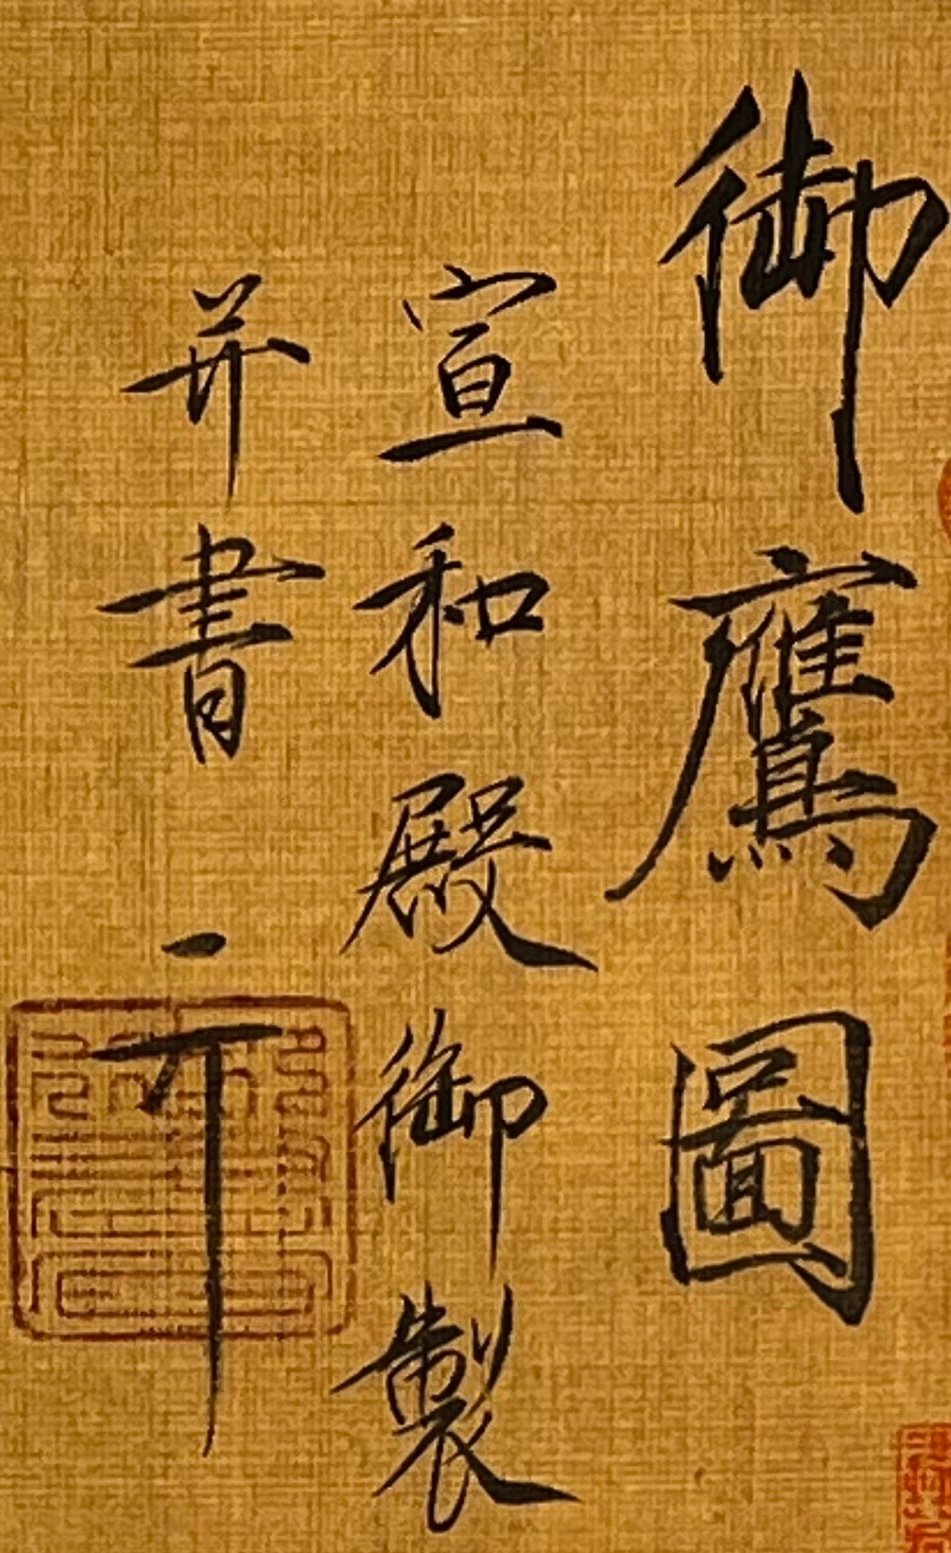 御鷹圖
宣和殿御製
并書